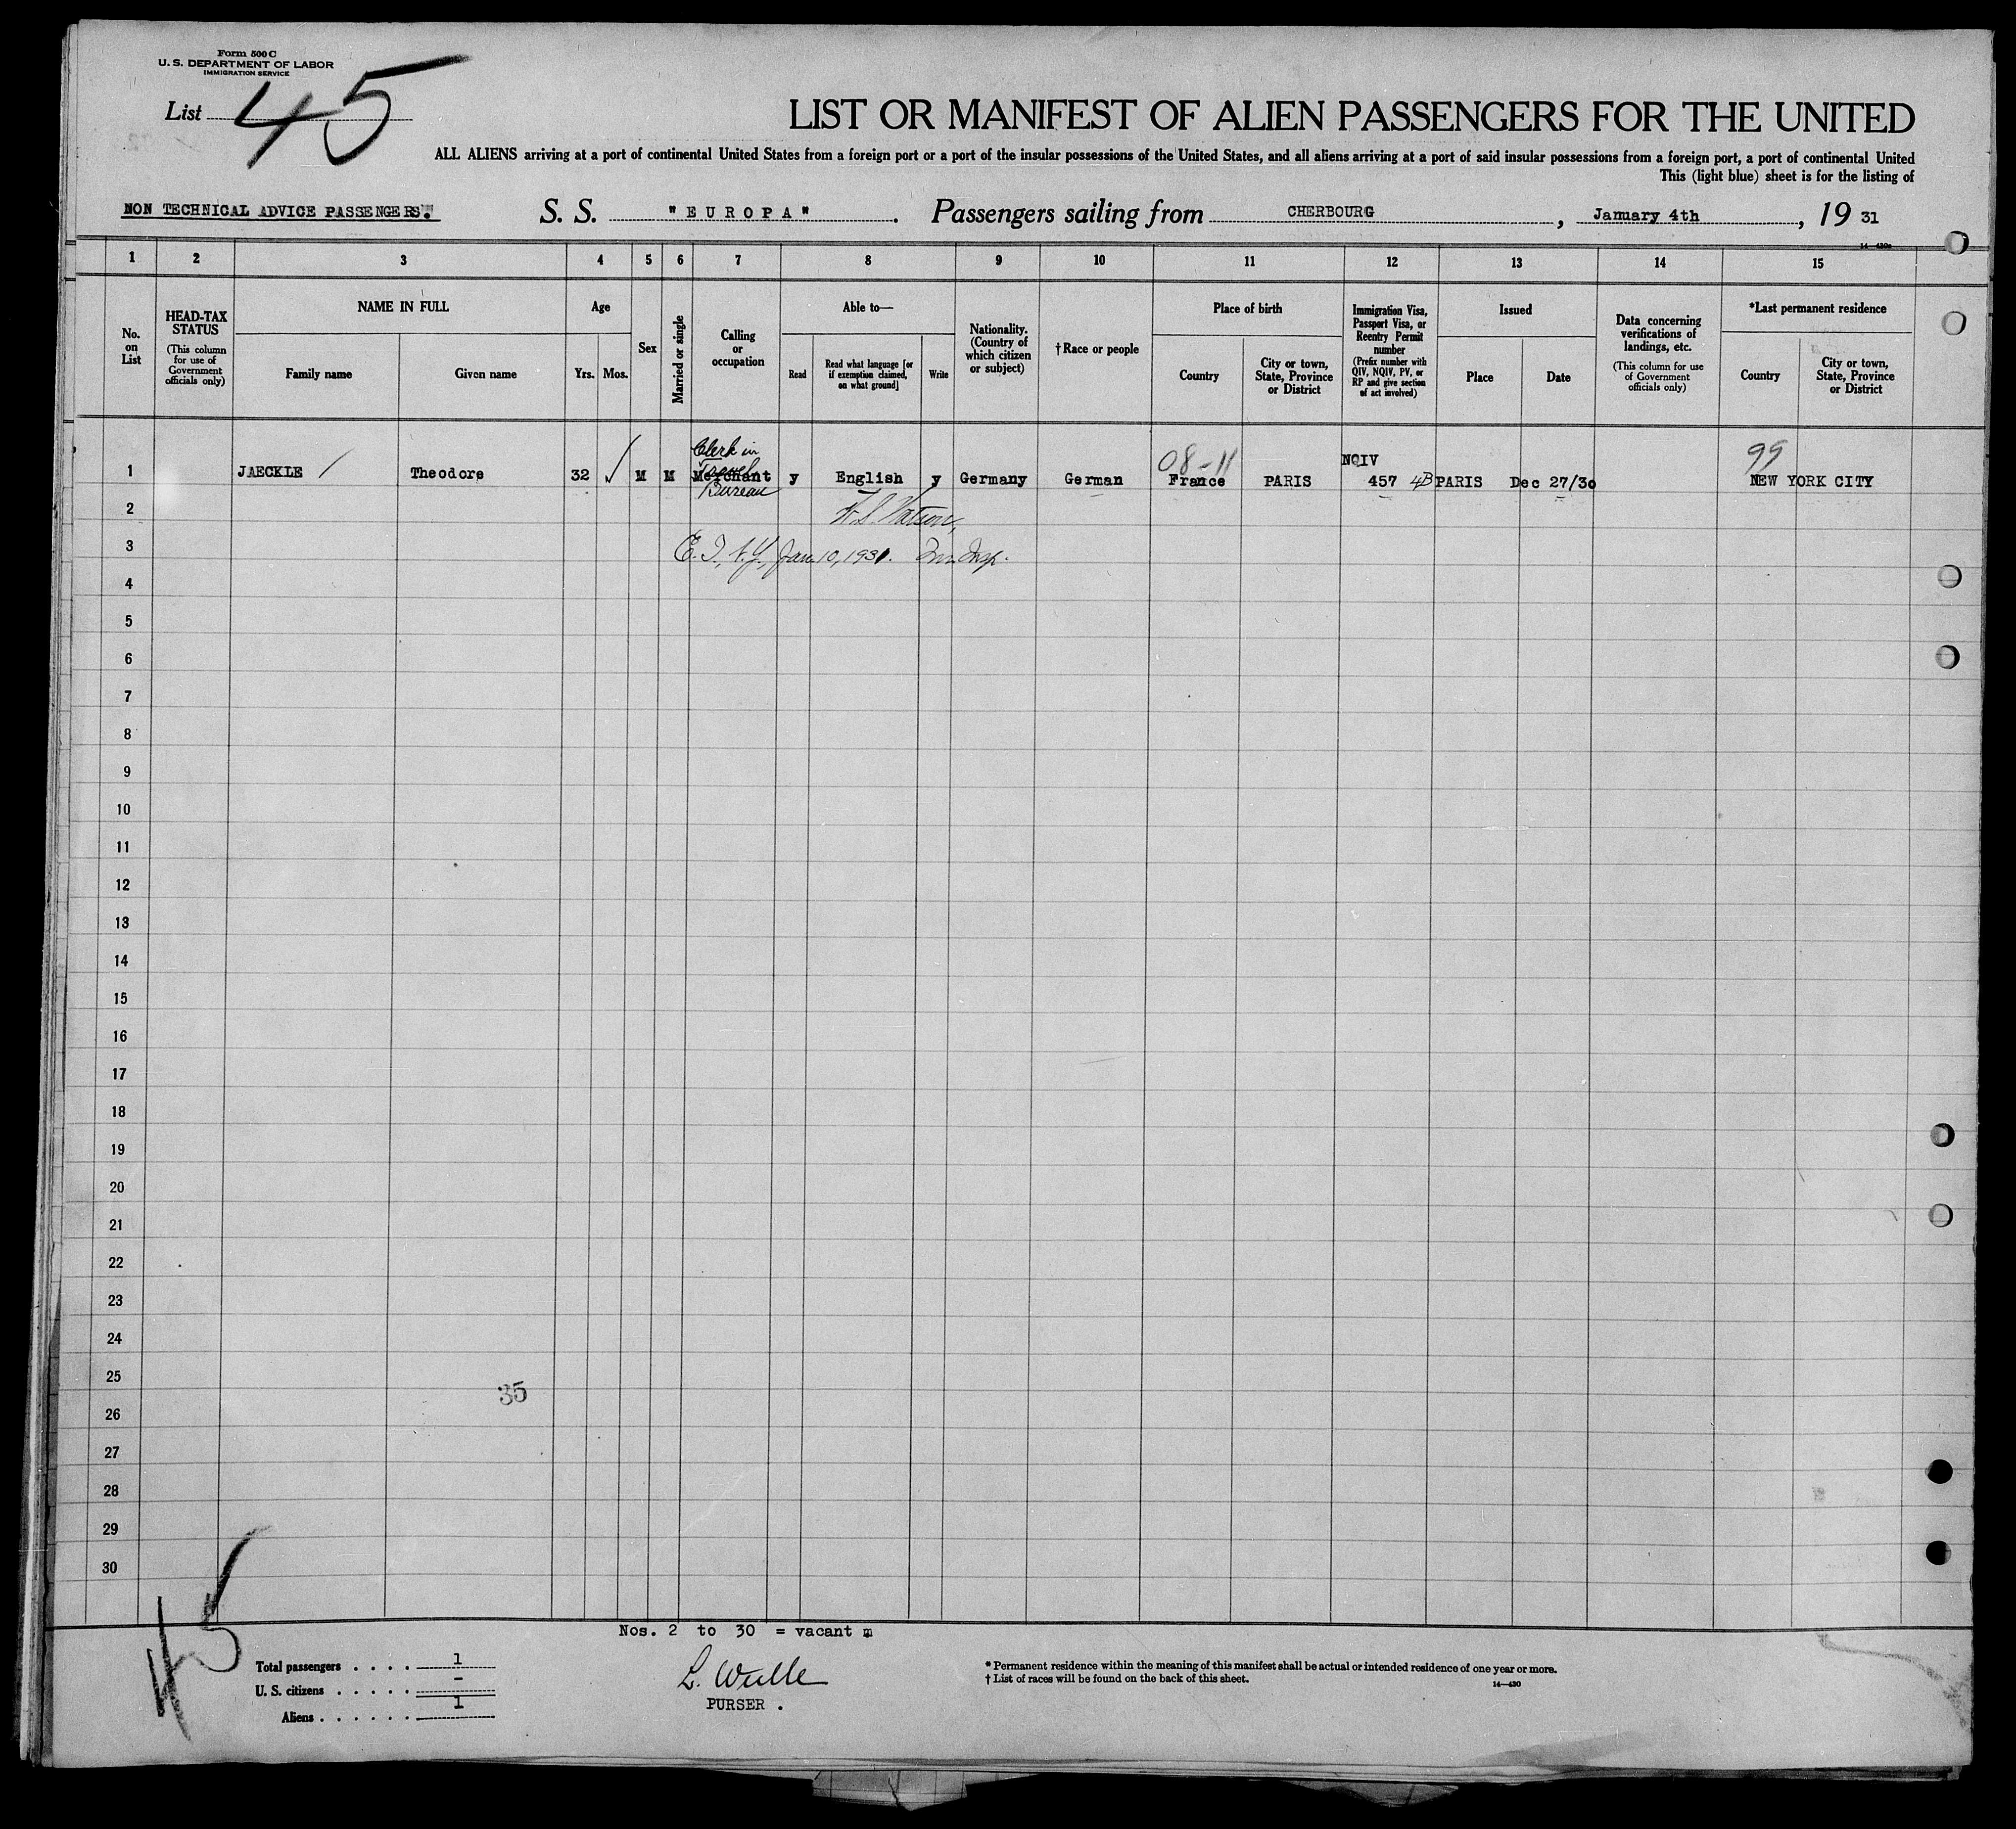 Form 500 C
U. S. DEPARTMENT OF LABOR
IMMIGRATION SERVICE
List 45
LIST OR MANIFEST OF ALIEN PASSENGERS FOR THE UNITED
ALL ALIENS arriving at a port of continental United States from a foreign port or a port of the insular possessions of the United States, and all aliens arriving at a port of said insular possessions from a foreign port, a port of continental United
This (light blue) sheet is for the listing of
NON TECHNICAL ADVICE PASSENGERS. S. S. "EUROPA". Passengers sailing from CHERBOURG, January 4th, 19 31
14-430a
1 2 3 4 5 6 7 8 9 10 11 12 13 14 15
No. on List
HEAD-TAX STATUS
(This column for use of Government officials only)
NAME IN FULL
Family name
Given name
Age
Yrs. Mos.
Sex
Married or single
Calling or occupation
Able to—
Read
Read what language [or if exemption claimed, on what ground]
Write
Nationality. (Country of which citizen or subject)
†Race or people
Place of birth
Country
City or town, State, Province or District
Immigration Visa, Passport Visa, or Reentry Permit number
(Prefix number with QIV, NQIV, PV, or RP and give section of act involved)
Issued
Place
Date
Data concerning verifications of landings, etc.
(This column for use of Government officials only)
*Last permanent residence
Country
City or town, State, Province or District
Clerk in
Travel
Bureau
08-11
NQIV
99
1 JAECKLE Theodore 32 M M Merchant y English y Germany German France PARIS 457 4B PARIS Dec 27/30 NEW YORK CITY
2
W. S. Watson,
3
E. I., N.Y., Jan 10, 1931. Im. Insp.
4
5
6
7
8
9
10
11
12
13
14
15
16
17
18
19
20
21
22
23
24
25
35
26
27
28
29
30
45
Nos. 2 to 30 = vacant
Total passengers . . . . 1
U. S. citizens . . . . . -
Aliens . . . . . . 1
L. Wulle
PURSER .
* Permanent residence within the meaning of this manifest shall be actual or intended residence of one year or more.
† List of races will be found on the back of this sheet.
14-430